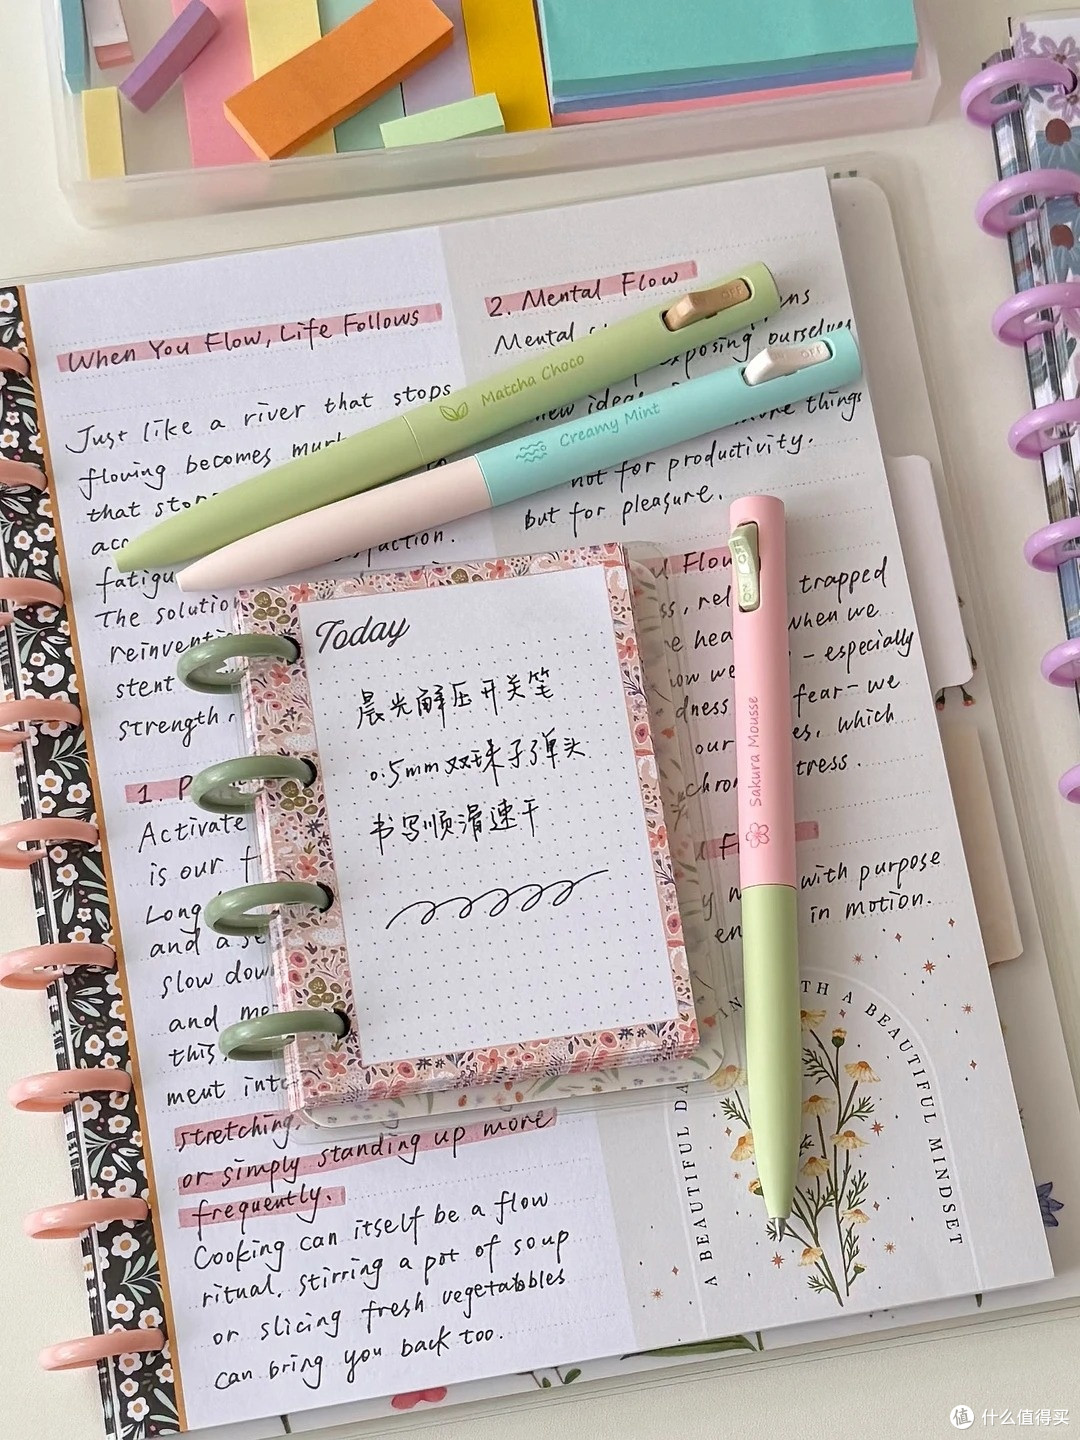 When You Flow, Life Follows
Just like a river that stops
flowing becomes
that stops
fatigu
The solutio
reinventi
stent
strength.
1. P
Activate
is our f
Long
and a se
slow dow
and mo
this.
ment into
stretching,
or simply standing up more
frequently.
Cooking can itself be a flow
ritual, stirring a pot of soup
or slicing fresh vegetables
can bring you back too.
2. Mental Flow
Mental
exposing ourselves
new ideas things
not for productivity.
but for pleasure.
Flow
trapped
hea when we
how we - especially
dness fear- we
our es, which
chro tress.
with purpose
in motion.
Matcha Choco
OFF
Creamy Mint
OFF
Sakura Mousse
ON OFF
Today
晨光解压开关笔
0.5mm双珠子弹头
书写顺滑速干
A BEAUTIFUL DA
IN WITH A BEAUTIFUL MINDSET
值 什么值得买